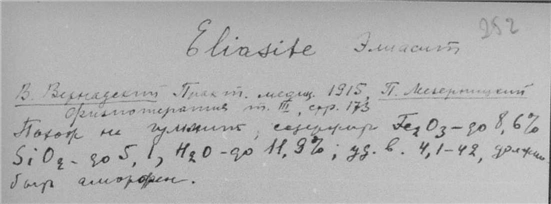 252
Eliasite Элиасит
В. Вернадский Практ. медиц. 1915, П. Мезерницкий
Физиотерапия т. III, стр. 173
Похож на гуммит, содержит Fe2O3 – до 8,6%
SiO2 – до 5,1, H2O – до 11,9%; уд. в. 4,1–42, должен
быть аморфен.